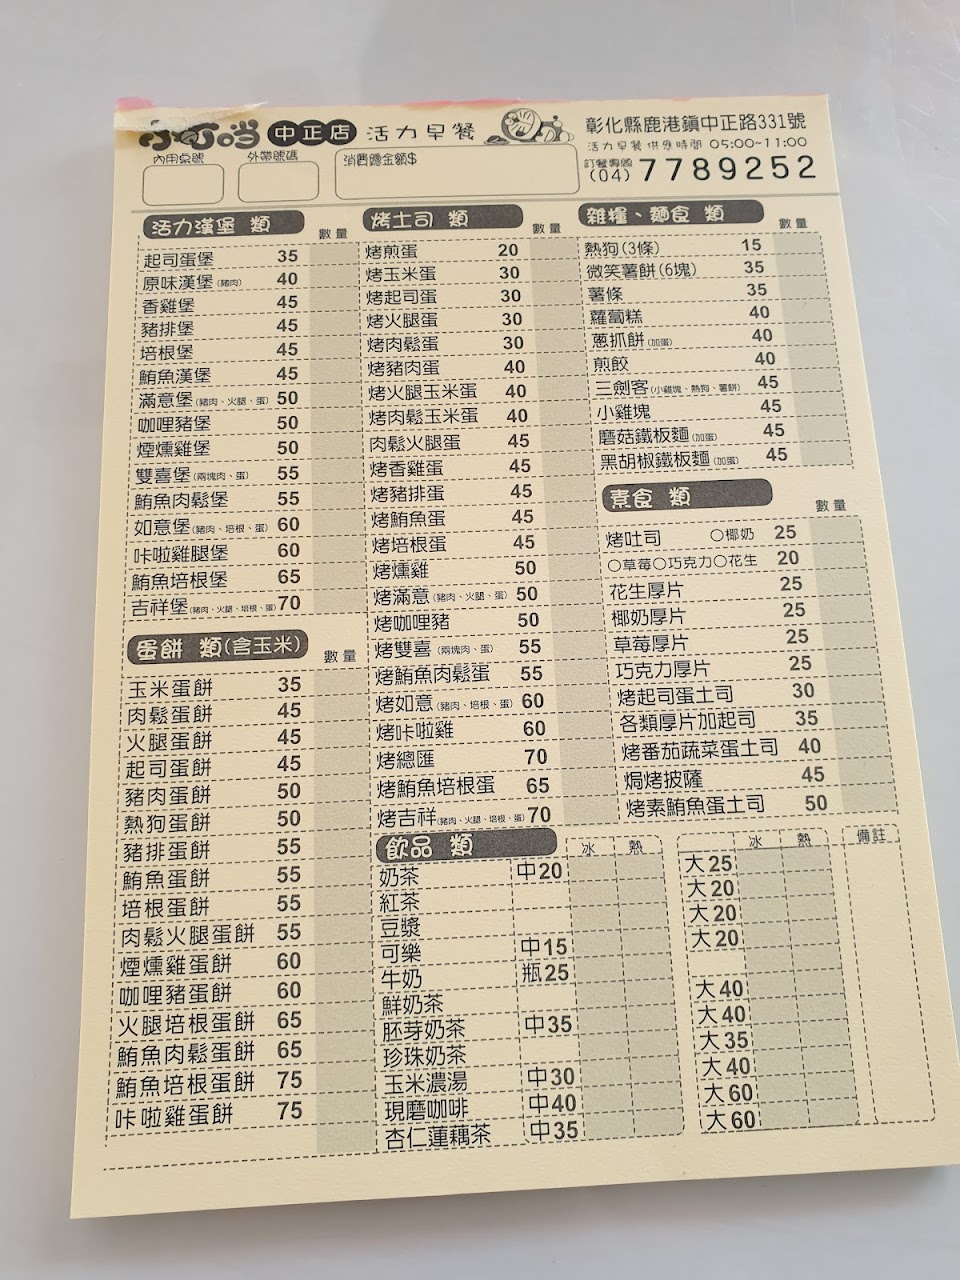 小叮噹 中正店 活力早餐
彰化縣鹿港鎮中正路331號
活力早餐供應時間 05:00~11:00
訂餐專線 (04) 7789252
內用桌號
外帶號碼
消費總金額$
活力漢堡 類 數量
起司蛋堡 35
原味漢堡(豬肉) 40
香雞堡 45
豬排堡 45
培根堡 45
鮪魚漢堡 45
滿意堡(豬肉、火腿、蛋) 50
咖哩豬堡 50
煙燻雞堡 50
雙喜堡(兩塊肉、蛋) 55
鮪魚肉鬆堡 55
如意堡(豬肉、培根、蛋) 60
咔啦雞腿堡 60
鮪魚培根堡 65
吉祥堡(豬肉、火腿、培根、蛋) 70
蛋餅 類(含玉米) 數量
玉米蛋餅 35
肉鬆蛋餅 45
火腿蛋餅 45
起司蛋餅 45
豬肉蛋餅 50
熱狗蛋餅 50
豬排蛋餅 55
鮪魚蛋餅 55
培根蛋餅 55
肉鬆火腿蛋餅 55
煙燻雞蛋餅 60
咖哩豬蛋餅 60
火腿培根蛋餅 65
鮪魚肉鬆蛋餅 65
鮪魚培根蛋餅 75
咔啦雞蛋餅 75
烤土司 類 數量
烤煎蛋 20
烤玉米蛋 30
烤起司蛋 30
烤火腿蛋 30
烤肉鬆蛋 30
烤豬肉蛋 40
烤火腿玉米蛋 40
烤肉鬆玉米蛋 40
肉鬆火腿蛋 45
烤香雞蛋 45
烤豬排蛋 45
烤鮪魚蛋 45
烤培根蛋 45
烤燻雞 50
烤滿意(豬肉、火腿、蛋) 50
烤咖哩豬 50
烤雙喜(兩塊肉、蛋) 55
烤鮪魚肉鬆蛋 55
烤如意(豬肉、培根、蛋) 60
烤咔啦雞 60
烤總匯 70
烤鮪魚培根蛋 65
烤吉祥(豬肉、火腿、培根、蛋) 70
雜糧、麵食 類 數量
熱狗(3條) 15
微笑薯餅(6塊) 35
薯條 35
蘿蔔糕 40
蔥抓餅(加蛋) 40
煎餃 40
三劍客(小雞塊、熱狗、薯餅) 45
小雞塊 45
磨菇鐵板麵(加蛋) 45
黑胡椒鐵板麵(加蛋) 45
素食 類 數量
烤吐司 ○椰奶 25
○草莓○巧克力○花生 20
花生厚片 25
椰奶厚片 25
草莓厚片 25
巧克力厚片 25
烤起司蛋土司 30
各類厚片加起司 35
烤番茄蔬菜蛋土司 40
焗烤披薩 45
烤素鮪魚蛋土司 50
飲品 類 冰 熱 冰 熱 備註
奶茶 中20 大25
紅茶 大20
豆漿 大20
可樂 中15 大20
牛奶 瓶25
鮮奶茶 大40
胚芽奶茶 中35 大40
珍珠奶茶 大35
玉米濃湯 中30 大40
現磨咖啡 中40 大60
杏仁蓮藕茶 中35 大60